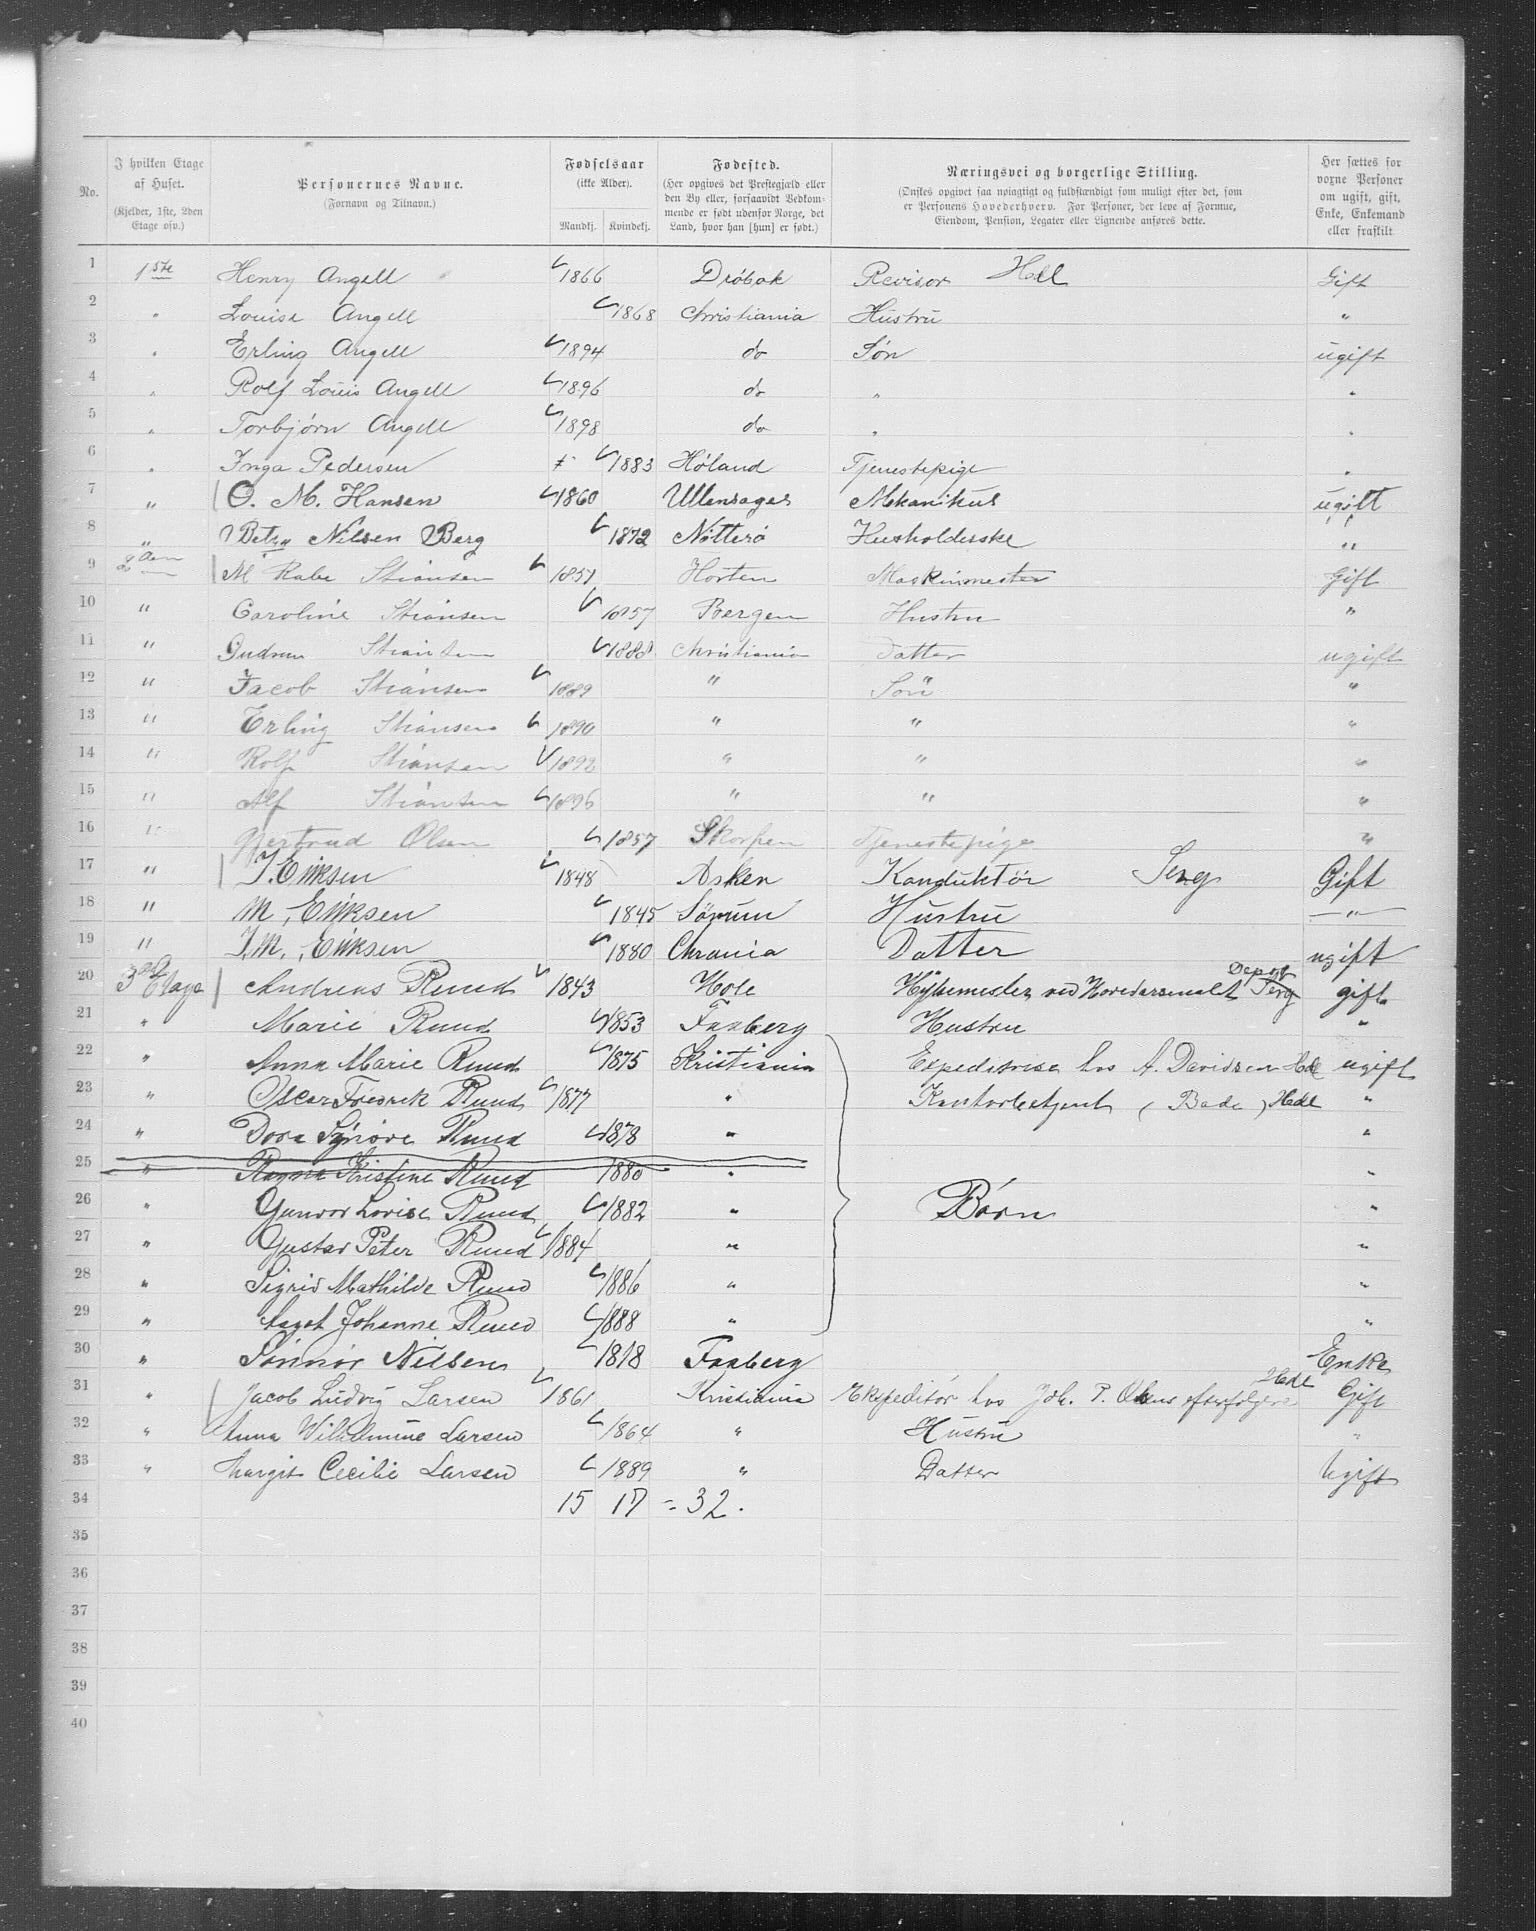 No.
I hvilken Etage af Huset. (Kjelder, 1ste, 2den Etage osv.)
Personernes Navne. (Fornavn og Tilnavn.)
Fødselsaar (ikke Alder). Mandkj. Kvindekj.
Fødested. (Her opgives det Prestegjæld eller den By eller, forsaavidt Vedkommende er født udenfor Norge, det Land, hvor han [hun] er født.)
Næringsvei og borgerlige Stilling. (Ønskes opgivet saa nøiagtigt og fuldstændigt som muligt efter det, som er Personens Hovederhverv. For Personer, der leve af Formue, Eiendom, Pension, Legater eller Lignende anføres dette.)
Her sættes for voxne Personer om ugift, gift, Enke, Enkemand eller fraskilt.
1 1ste Henry Angell 1866 Drøbak Revisor Hdl Gift
2 " Louise Angell 1868 Christiania Hustru "
3 " Erling Angell 1894 do Søn ugift
4 " Rolf Louis Angell 1896 do " "
5 " Torbjørn Angell 1898 do " "
6 " Inga Pedersen 1883 Høland Tjenestepige "
7 " O. M. Hansen 1860 Ullensager Mekanikus ugift
8 " Nilsen Berg 1872 Nøtterø Husholderske "
9 2den M Rabe 1857 Horten Maskinmester Gift
10 " Caroline 1857 Bergen Hustru "
11 " Gudrun 1888 Christiania Datter ugift
12 " Jacob 1889 " Søn "
13 " Erling 1890 " " "
14 " Rolf 1892 " " "
15 " Alf 1896 " " "
16 " Gjertrud Olsen 1857 Tjenestepige "
17 " J. Eriksen 1848 Asker Konduktør Gift
18 " M. Eriksen 1845 Sørum Hustru "
19 " J. M. Eriksen 1880 Chrania Datter ugift
20 3die Etage Andreas Ruud 1843 Hole ved Hovedarsenalet Depot gift
21 " Marie Ruud 1853 Faaberg Hustru "
22 " Anna Marie Ruud 1875 Kristiania Expeditrise hos A. Davidsen Hdl ugift
23 " Oscar Fredrik Ruud 1877 " Kontorbetjent ( Bade ) Hdl "
24 " Dora Synøve Ruud 1878 " "
25 " Ragna Kristine Ruud 1880 " "
26 " Gunvor Lovise Ruud 1882 " Børn "
27 " Gustav Peter Ruud 1884 " "
28 " Sigrid Mathilde Ruud 1886 " "
29 " Aagot Johanne Ruud 1888 " "
30 " Nilsen 1818 Faaberg Enke
31 " Jacob Ludvig Larsen 1861 Kristiania Ekspeditør hos Joh. P. Olsens efterfølgere Hdl Gift
32 " Anna Vilhelmine Larsen 1864 " Hustru "
33 " Margit Cecilie Larsen 1889 " Datter Ugift
34 15 17 = 32.
35
36
37
38
39
40